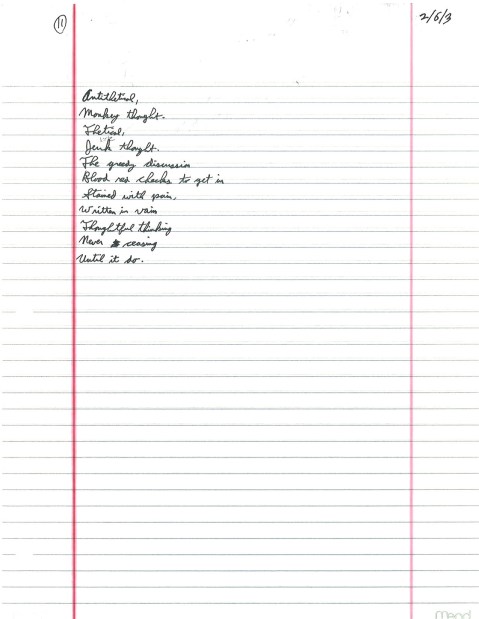 11
2/6/3
Antithetical,
Monkey thought.
Thetical,
Junk thought.
The greedy discussion
Blood red checks to get in
Stained with pain,
Written in vain
Thoughtful thinking
Never ceasing
Until it do.
Mead